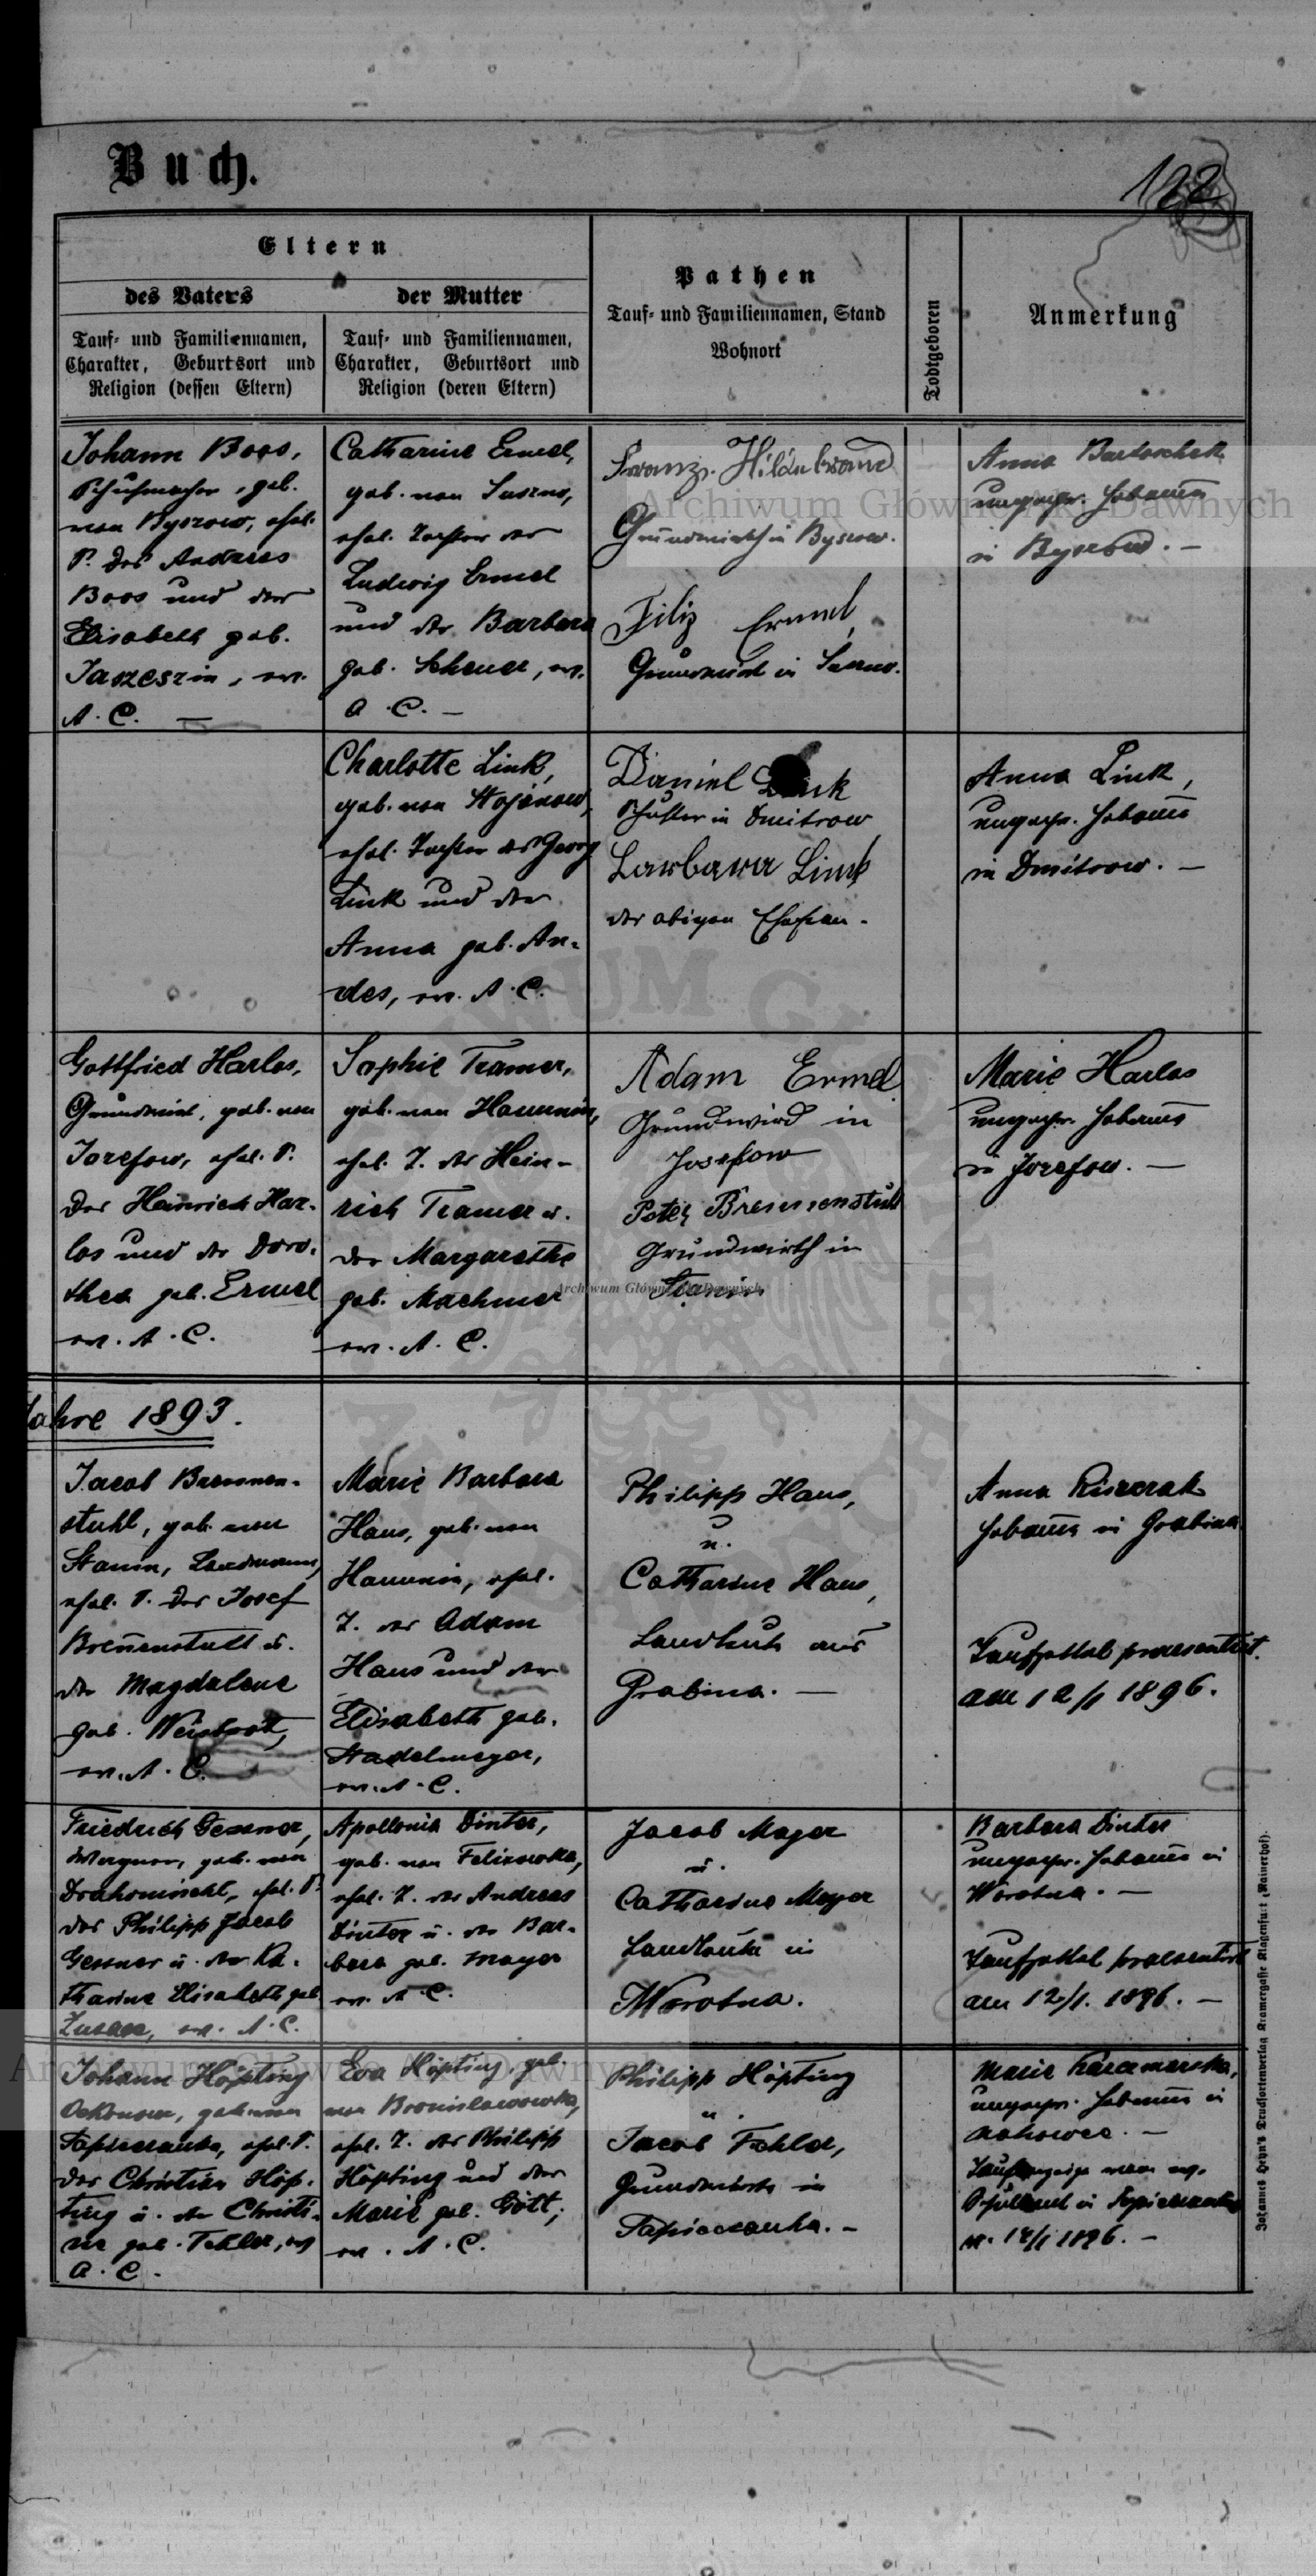 Buch.
122
Eltern
des Vaters
Tauf- und Familiennamen,
Charakter, Geburtsort und
Religion (dessen Eltern)
der Mutter
Tauf- und Familiennamen,
Charakter, Geburtsort und
Religion (deren Eltern)
Pathen
Tauf- und Familiennamen, Stand
Wohnort
Todtgeboren
Anmerkung
Johann Boos,
Schuhmacher, geb.
von Byszow, ehel.
S. des Andreas
Boos und der
Elisabeth geb.
Jaszeszin, ev.
A. C. —
Catharine Ermel,
geb. von
ehel. Tochter des
Ludwig Ermel
und der Barbara
geb. Scheuer, ev.
A. C. —
Franz Hildebrand
Grundwirth in Byszow.
Filip Ermel,
Grundwirth in
Anna Bartoschek
ungepr. Hebamme
in Byszow. —
Charlotte Link,
geb. von Stojanow,
ehel. Tochter des Georg
Link und der
Anna geb. An-
des, ev. A. C.
Daniel Link
Schuster in Dmitrow
Barbara Link
des obigen Ehefrau.
Anna Link,
ungepr. Hebamme
in Dmitrow. —
Gottfried Harlos,
Grundwirt, geb. von
Jozefow, ehel. S.
des Heinrich Har-
los und der Doro-
thea geb. Ermel
ev. A. C.
Sophie Tramer,
geb. von Hanunin,
ehel. T. des Hein-
rich Tramer u.
der Margarethe
geb. Machmer
ev. A. C.
Adam Ermel
Grundwird in
Josefow
Peter Bremmenstuhl
Grundwirth in
Stanin
Marie Harlos
ungepr. Hebamme
in Jozefow. —
Jahre 1893.
Jacob Bremmen-
stuhl, geb. von
Stanin, Landmann,
ehel. S. des Josef
Breñenstuhl u.
der Magdalene
geb.
ev. A. C.
Marie Barbara
Haus, geb. von
Hanunin, ehel.
T. des Adam
Haus und der
Elisabeth geb.
Stadelmeyer,
ev. A. C.
Philipp Haus,
u.
Catharine Haus,
Landleute aus
Grabina. —
Anna
Hebamme in Grabina
Taufzettel praesentirt
am 12/1 1896.
Friedrich Gessner,
Wagner, geb. von
ehel. S.
des Philipp Jacob
Gessner u. der Ka-
tharine Elisabeth geb.
ev. A. C.
Apollonia Dinter,
geb. von Felixowka,
ehel. T. des Andreas
Dinter u. der Bar-
bara geb. Mayer
ev. A. C.
Jacob Mayer
u.
Catharine Mayer
Landleute in
Worotna.
Barbara Dinter
ungepr. Hebamme in
Worotna. —
Taufzettel praesentirt
am 12/1. 1896. —
Johann Höpfing
geb. von
Sapiezanka, ehel. S.
des Christian Höp-
fing u. der Christi-
ne geb. Fehler, ev.
A. C.
Eva Höpfing, geb.
von Bronislawowka,
ehel. T. des Philipp
Höpfing und der
Marie geb. Gött,
ev. A. C.
Philipp Höpfing
u.
Jacob Fehler,
Grundwirthe in
Sapiezanka. —
Marie Karczmarska,
ungepr. Hebamme in
Taufanzeige vom ev.
Pfarramt in Sapiezanka
v. 12/1 1896. —
Johannes Heyn's Drucksortenverlag Kramergasse Klagenfurt (Rainerhof).
Archiwum Główne Akt Dawnych
Archiwum Główne Akt Dawnych
Archiwum Główne Akt Dawnych